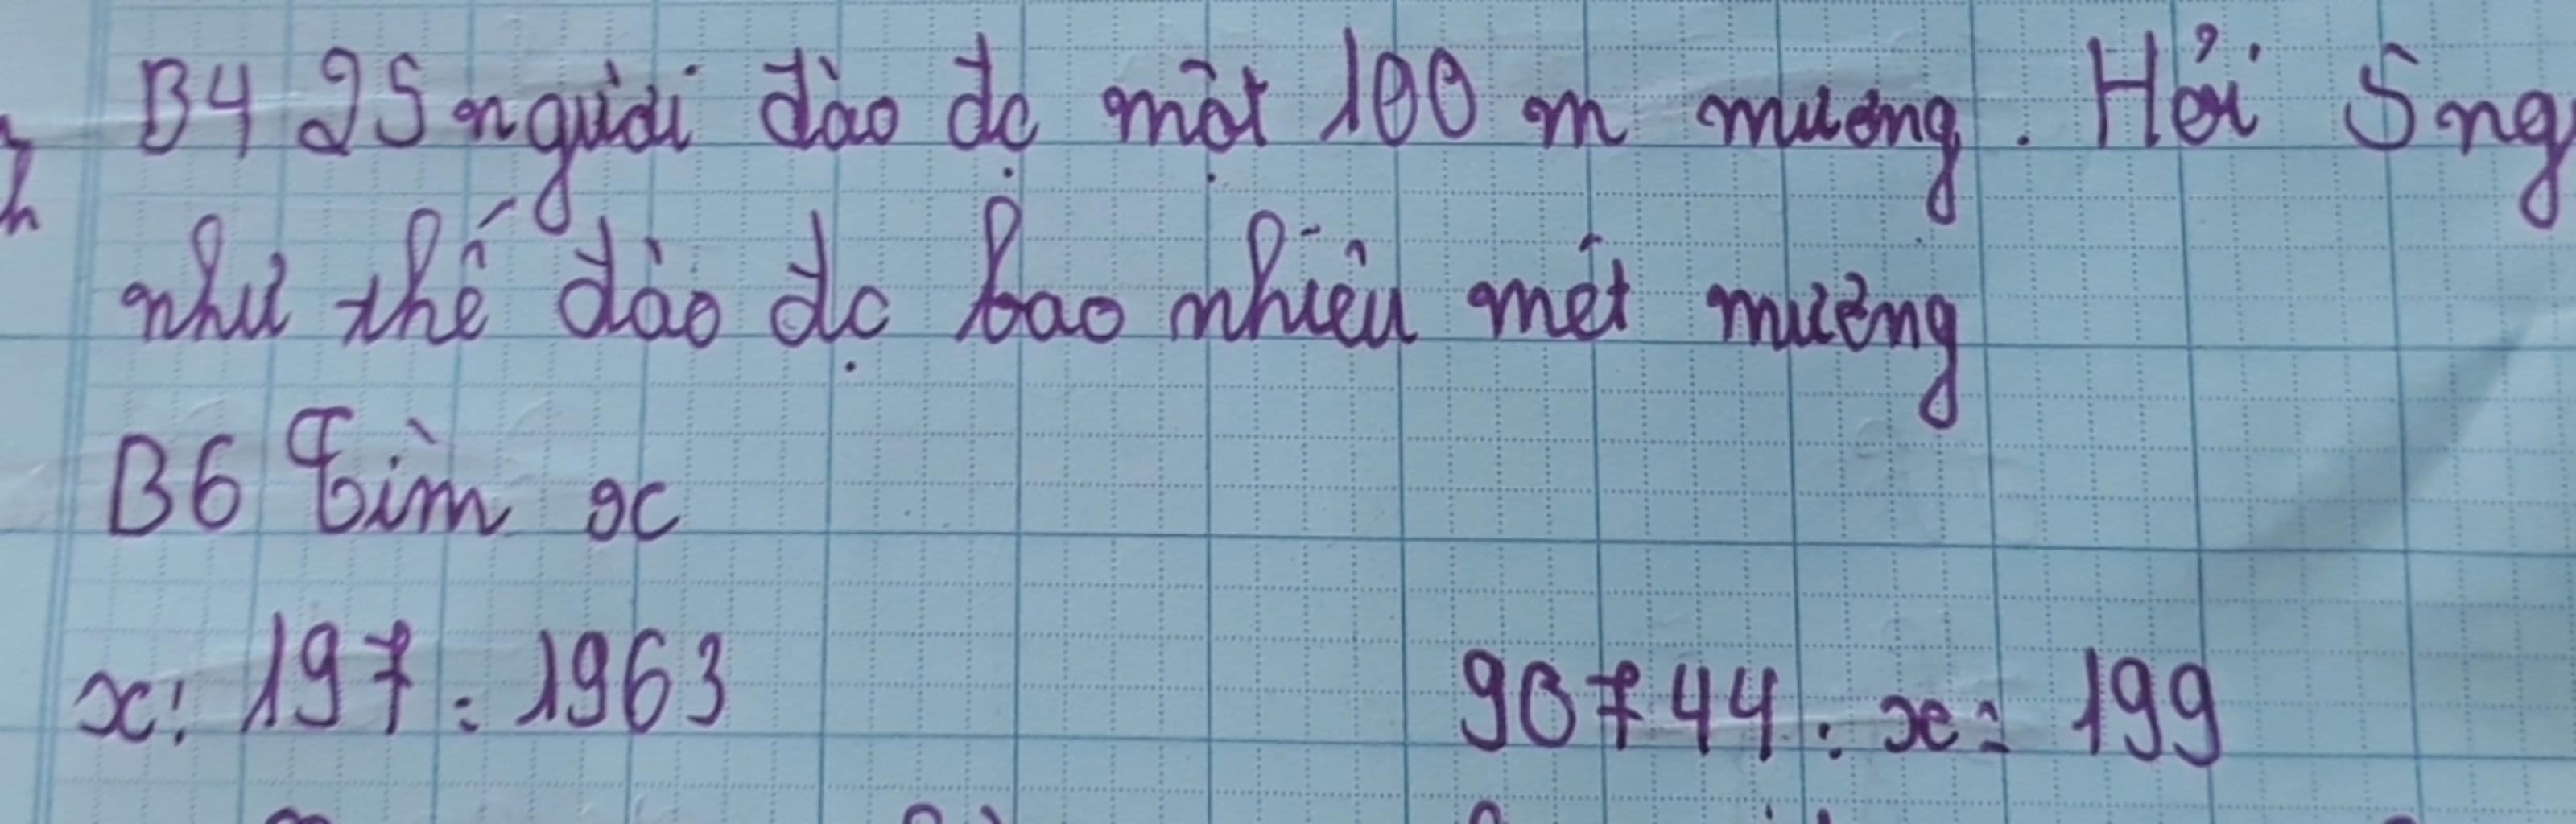 B4 25 người đào đc một 100 m mương. Hỏi 5 ng
như thế đào đc bao nhiêu mét mương
B6 Tìm x
x: 197 = 1963 90744 : x = 199